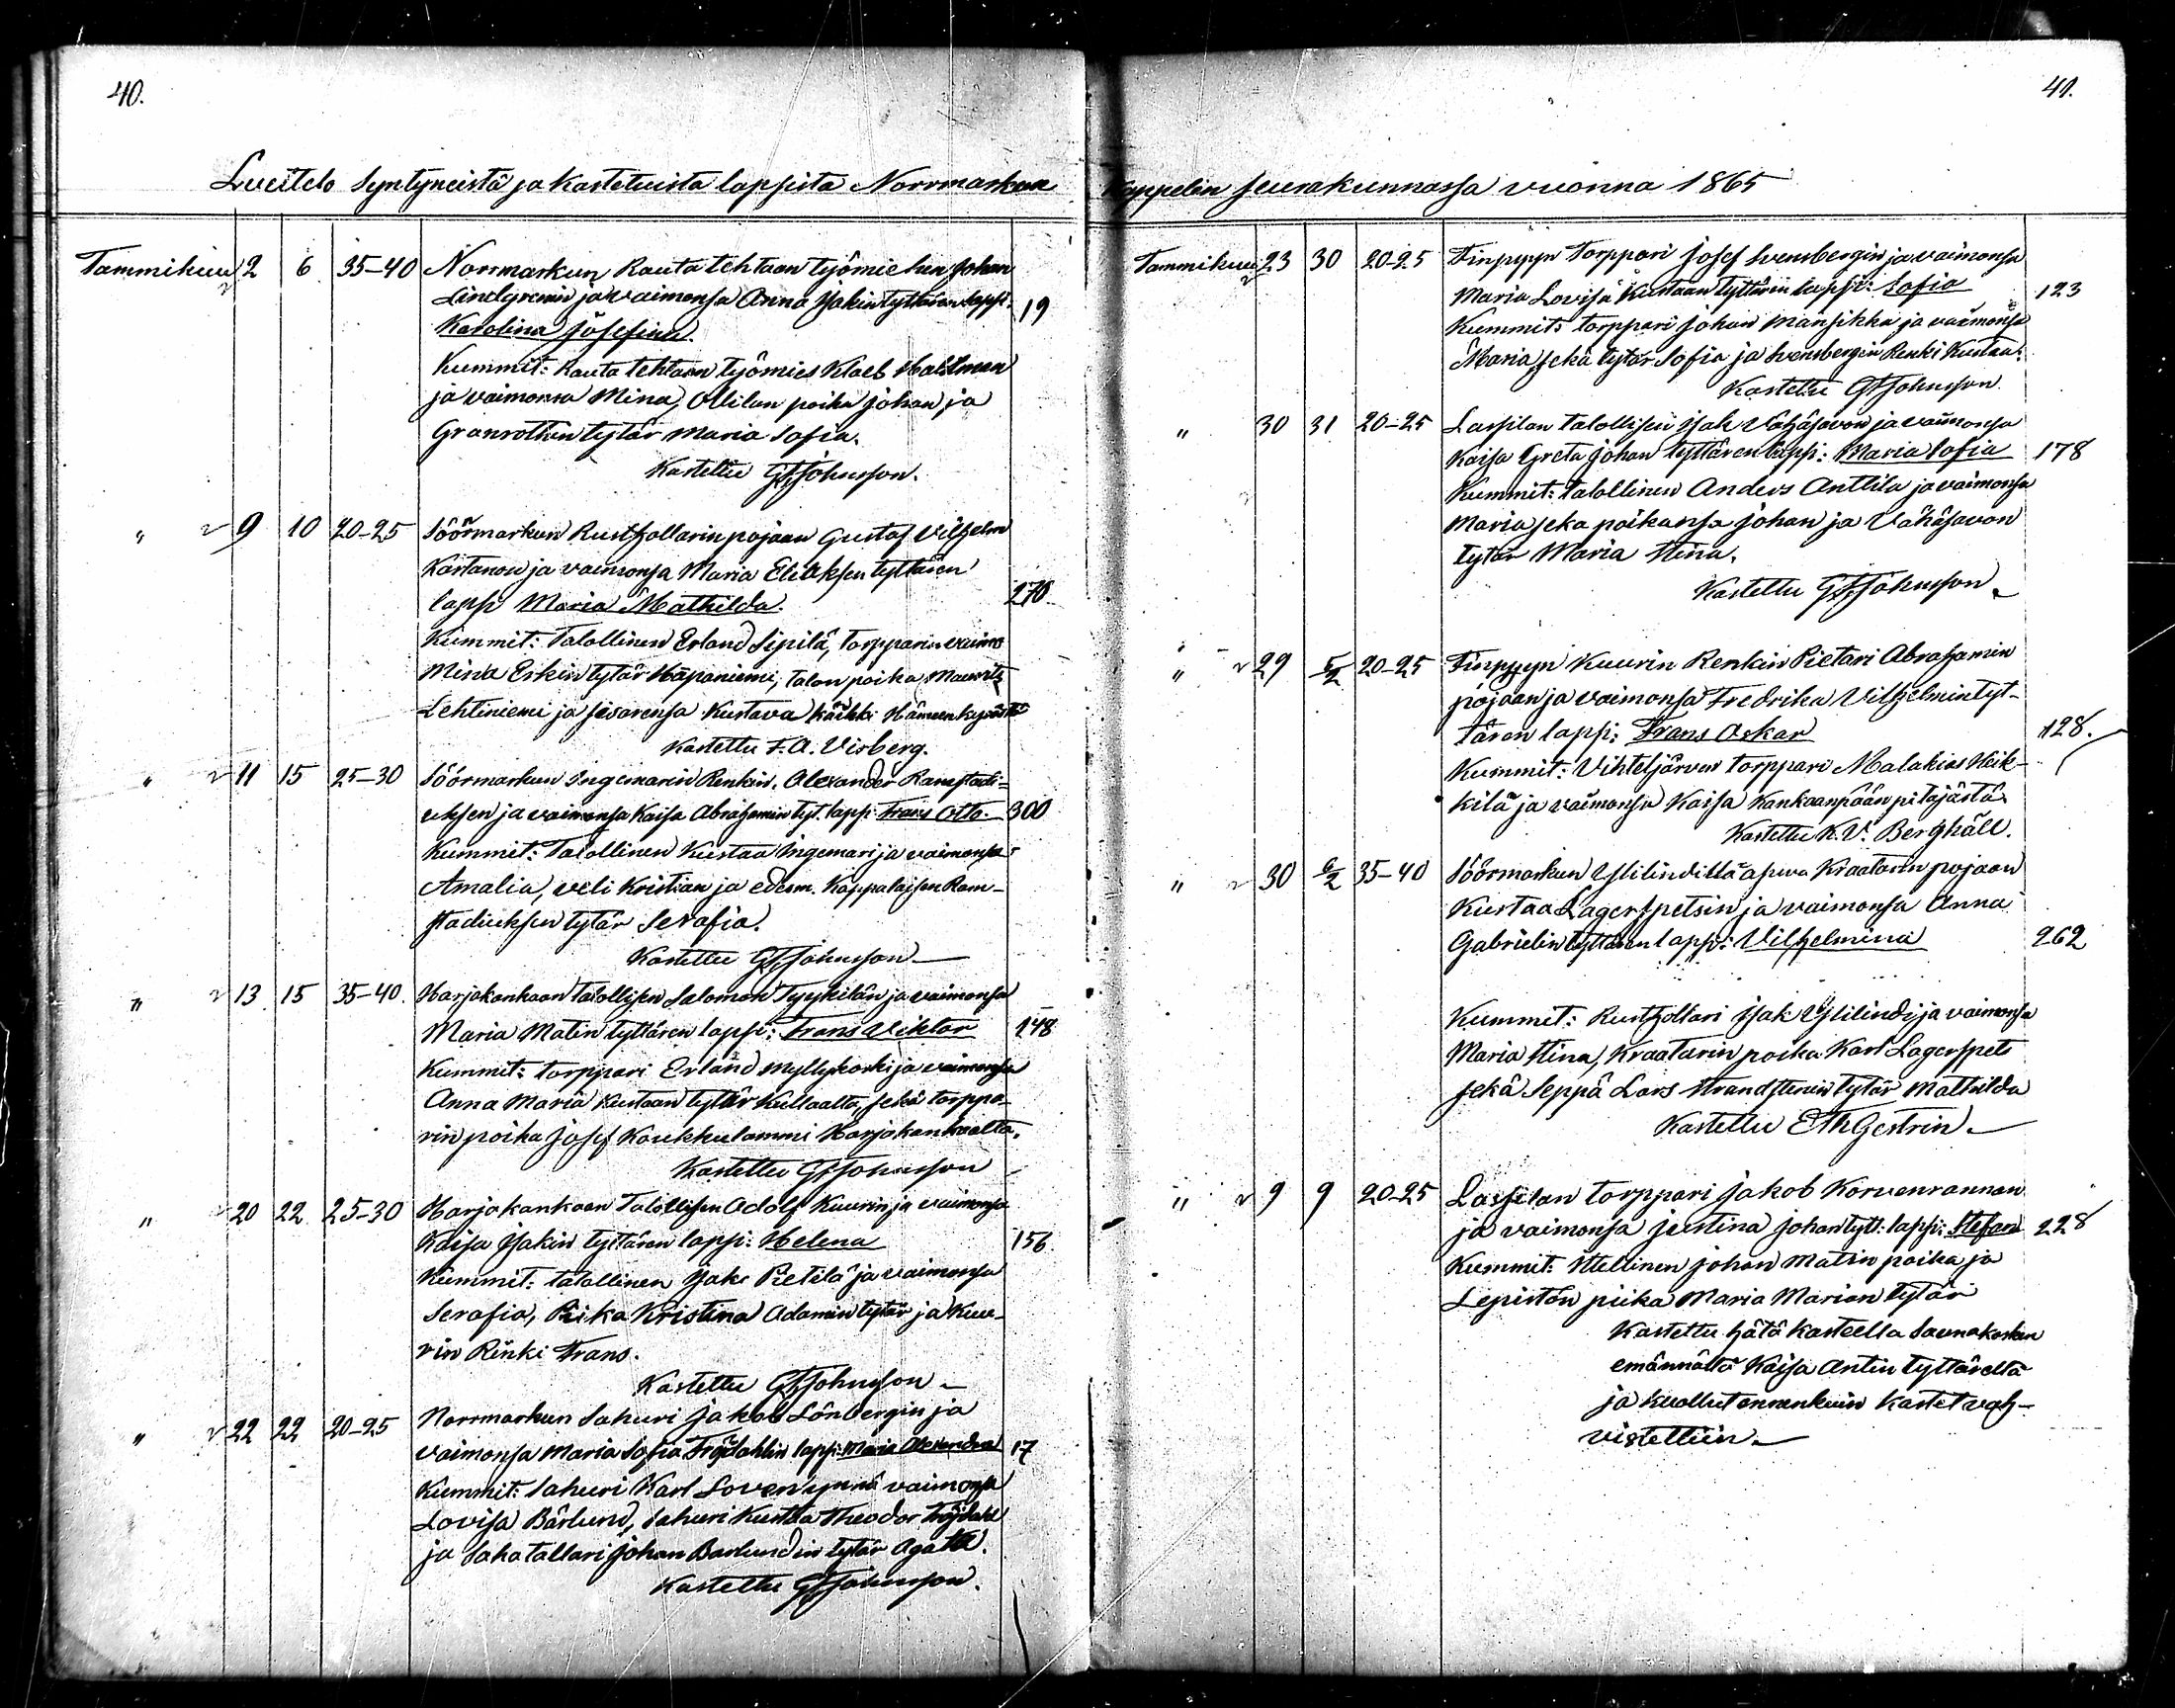 40.
Luettelo Syntyneistä ja Kastetuista lapsista Norrmarkun
Tammikuu 2 6 35-40 Norrmarkun Rauta tehtaan työmiehen Johan
Lindgrenin ja vaimonsa Anna Isakin tyttären lapsi 19
Karolina Josefina.
Kummit: Rauta tehtaan työmies Klaes Hallman
ja vaimonsa Mina, Ollilan poika Johan ja
Granrothin tytär Maria Sofia.
Kastettu GFJohnsson.
" 9 10 20-25 Söörmarkun Rusthollarin pojaan Gustaf Vilhelm
Kartanon ja vaimonsa Maria Eliaksen tyttären
lapsi Maria Mathilda. 270
Kummit: Talollinen Erland Sipilä, torpparin vaimo
Mina Erkin tytär Haapaniemi, talon poika Mauritz
Lehtiniemi ja sisarensa Kustava kaikki Hämeenkyröstä
Kastettu F.A. Visberg.
" 11 15 25-30 Söörmarkun Ingemarin Renkin, Alexander Ramstadi=
uksen ja vaimonsa Kaisa Abrahamin tyt. lapsi Frans Otto. 300
Kummit: Talollinen Kustaa Ingemari ja vaimonsa
Amalia, veli Kristian ja edesm. Kappalaisen Ram-
stadiuksen tytär Serafia.
Kastettu GFJohnsson
" 13 15 35-40. Harjakankaan talollisen Salomon Tyykilän ja vaimonsa
Maria Matin tyttären lapsi: Frans Viktor 148
Kummit: torppari Erland Myllykoski ja vaimonsa
Anna Maria Kustaan tytär Kullaalta, sekä torppa-
rin poika Josef Koukkulammi Harjakankaalta.
Kastettu GFJohnsson
" 20 22 25-30 Harjakankaan Talollisen Adolf Kuurin ja vaimonsa
Kaisa Isakin tyttären lapsi: Helena 156
Kummit: talollinen Isak Pietilä ja vaimonsa
Serafia, Piika Kristina Adamin tytär ja Kuu-
rin Rinki Frans.
Kastettu GFJohnsson
" 22 22 20-25 Norrmarkun Sahuri Jakob Lönbergin ja
vaimonsa Maria Sofia Fröjdahlin lapsi Maria Alexandra 17
Kummit: Sahuri Karl Loven ynnä vaimonsa
Lovisa Bärlund, Sahuri Kustaa Theodor Fröjdahl
ja Sahatallari Johan Barlundin tytär Agata.
Kastettu GFJohnsson.
41.
Kappelin seurakunnassa vuonna 1865
Tammikuu 23 30 20-25 Finpyyn Torppari Josef Svensbergin ja vaimonsa
Maria Lovisa Kustaan tyttärin lapsi: Sofia 123
Kummit: torppari Johan Mansikka ja vaimonsa
Maria sekä tytär Sofia ja Svensbergin Renki Kustaa.
Kastettu GFJohnsson
" 30 31 20-25 Lassilan talollisen Isak Vähäsavon ja vaimonsa
Kaisa Greta Johan tyttären lapsi: Maria Sofia 178
Kummit: talollinen Anders Anttila ja vaimonsa
Maria seka poikansa Johan ja Vähäsavon
tytär Maria Stina.
Kastettu GFJohnsson
" 29 5/2 20-25 Finpyyn Kuurin Renkin Pietari Abrahamin
pojaan ja vaimonsa Fredrika Vilhelmin tyt-
tären lapsi: Frans Oskar 128.
Kummit: Vihteljärven torppari Malakias Heik-
kilä ja vaimonsa Kaisa Kankaanpään pitäjästä
Kastettu K.V. Berghäll.
" 30 6/2 35-40 Söörmarkun Ylilindillä asuva Kraatarin pojaan
Kustaa Lagerspetsin ja vaimonsa Anna
Gabrielin tyttären lapsi: Vilhelmina 262
Kummit: Rusthollari Isak Ylilindi ja vaimonsa
Maria Stina, Kraatarin poika Karl Lagerspets
sekä Seppä Lars Strandstenin tytär Mathilda
Kastettu EThGestrin
" 9 9 20-25 Lassilan torppari Jakob Korvenrannan
ja vaimonsa Justina Johan tytt: lapsi: Stefan 228
Kummit: Itellinen Johan Matin poika ja
Lepistön piika Maria Marian tytär
Kastettu hätä kasteella Saunakosken
emännältä Kaisa Antin tyttäreltä
ja kuollut ennenkuin Kastet vah-
vistettiin